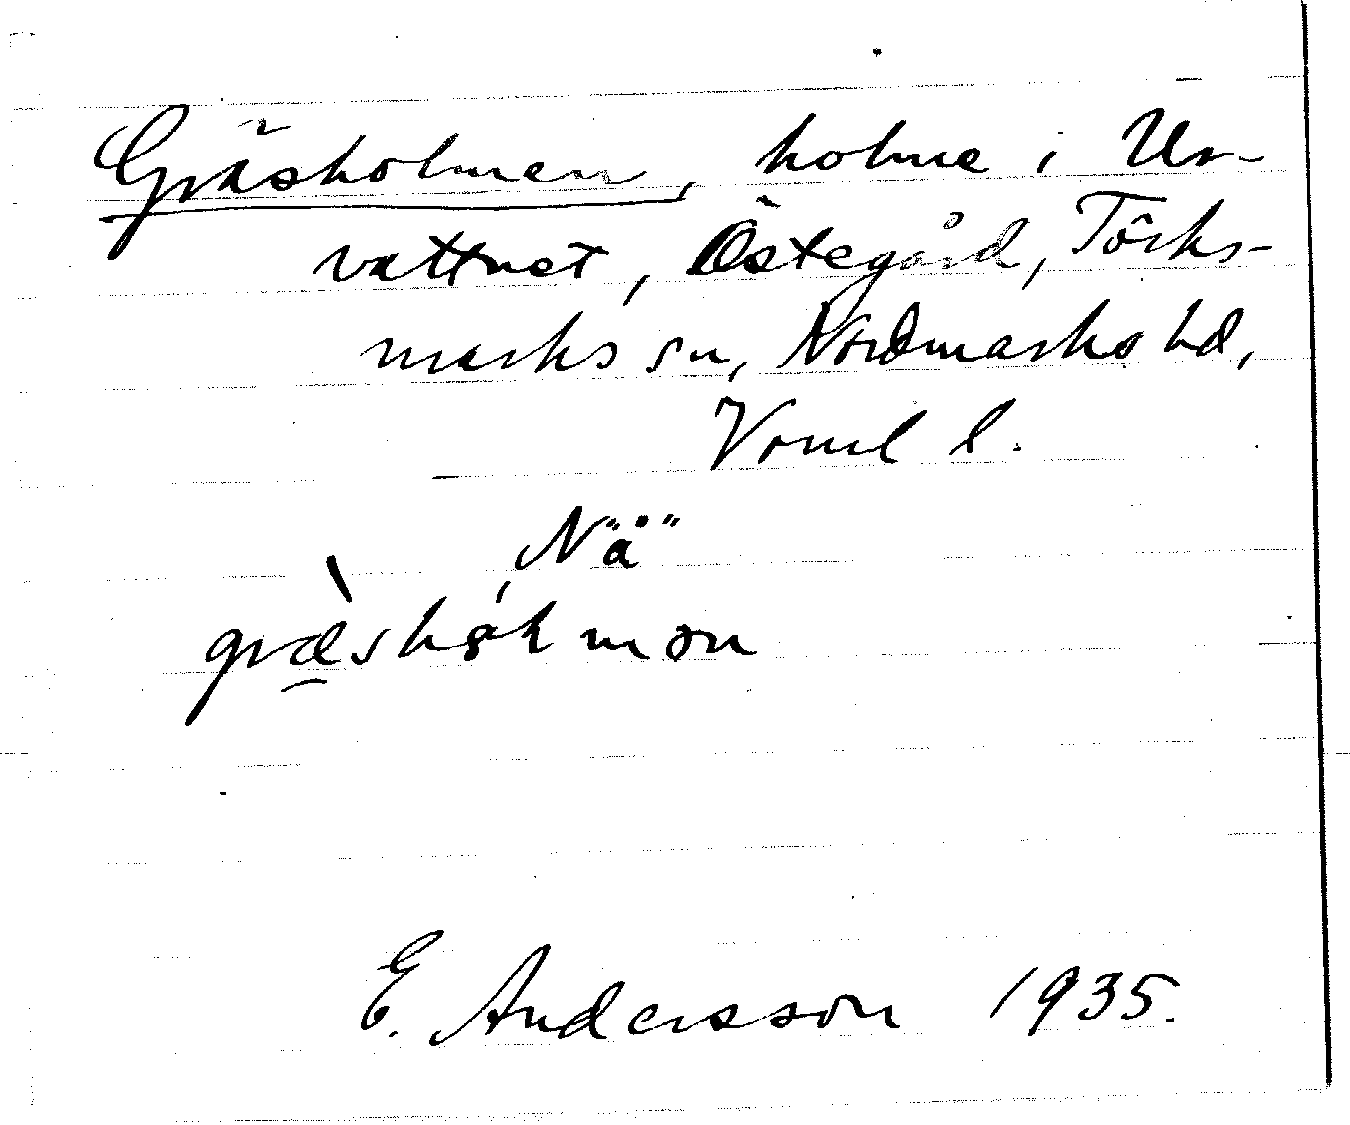 Gräsholmen, holme i Ur-
vattnet, Östegård, Töcks-
marks sn, Nordmarks hd,
Vrml l.
Nä
græ̀shò̱lmən
E. Andersson 1935.